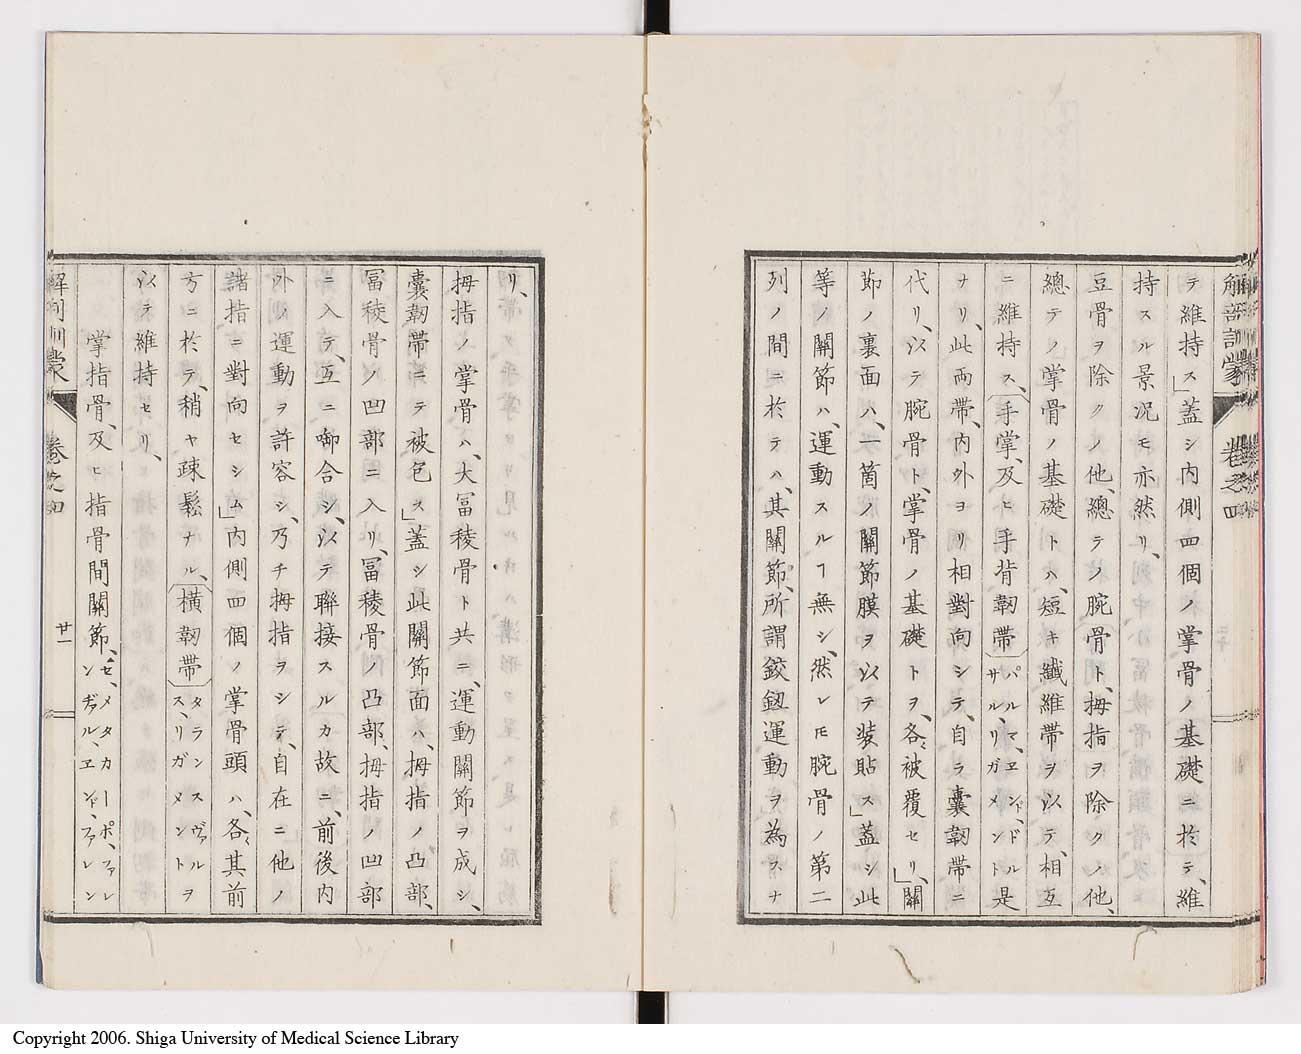 解剖訓蒙 巻之四
テ維持ス」蓋シ内側四個ノ掌骨ノ基礎ニ於テ、維
持スル景况モ亦然リ、
豆骨ヲ除クノ他、總テノ腕骨ト、拇指ヲ除クノ他、
總テノ掌骨ノ基礎トハ、短キ纖維帶ヲ以テ、相互
ニ維持ス、手掌、及ヒ手背韌帶パルマ、エンド、ドルサル、リガメント是
ナリ、此両帶、内外ヨリ相對向シテ、自ラ嚢韌帶ニ
代リ、以テ腕骨ト、掌骨ノ基礎トヲ、各〻被覆セリ、」關
節ノ裏面ハ、一箇ノ關節膜ヲ以テ装貼ス」蓋シ此
等ノ關節ハ、運動スルヿ無シ、然レ𪜈腕骨ノ第二
列ノ間ニ於テハ、其關節、所謂鉸釼運動ヲ為スナ
リ、
拇指ノ掌骨ハ、大冨稜骨ト共ニ、運動關節ヲ成シ、
嚢韌帶ニテ被包ス」蓋シ此關節面ハ、拇指ノ凸部、
冨稜骨ノ凹部ニ入リ、冨稜骨ノ凸部、拇指ノ凹部
ニ入テ、互ニ啣合シ、以テ聯接スルカ故ニ、前後内
外ノ運動ヲ許容シ、乃チ拇指ヲシテ、自在ニ他ノ
諸指ニ對向セシム」内側四個ノ掌骨頭ハ、各〻其前
方ニ於テ、稍ヤ疎鬆ナル、橫韌帶タランスヴァルス、リガメントヲ
以テ維持セリ、
掌指骨、及ヒ指骨間關節、ゼ、メタカーポ、ファレンヂァル、エンド、ファレン
解剖訓蒙 巻之四 廿一
Copyright 2006. Shiga University of Medical Science Library